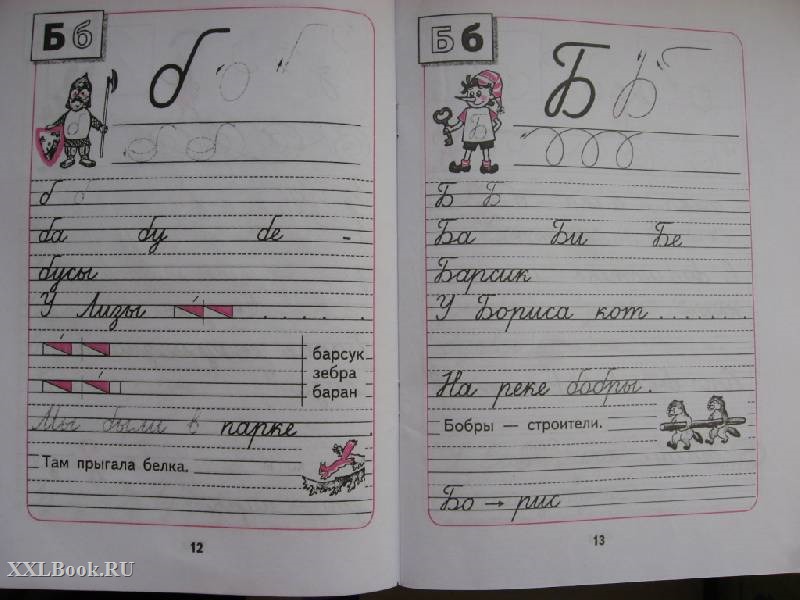 Б б
б б б
б б
б б
ба бу бе -
бусы
У Лизы . . . . . .
барсук
зебра
баран
Мы были в парке
Там прыгала белка.
12
Б б
Б Б
Б
Б Б
Ба Би Бе
Барсик
У Бориса кот . . . . . . .
На реке бобры.
Бобры — строители.
Бо → рис
13
XXLBook.RU